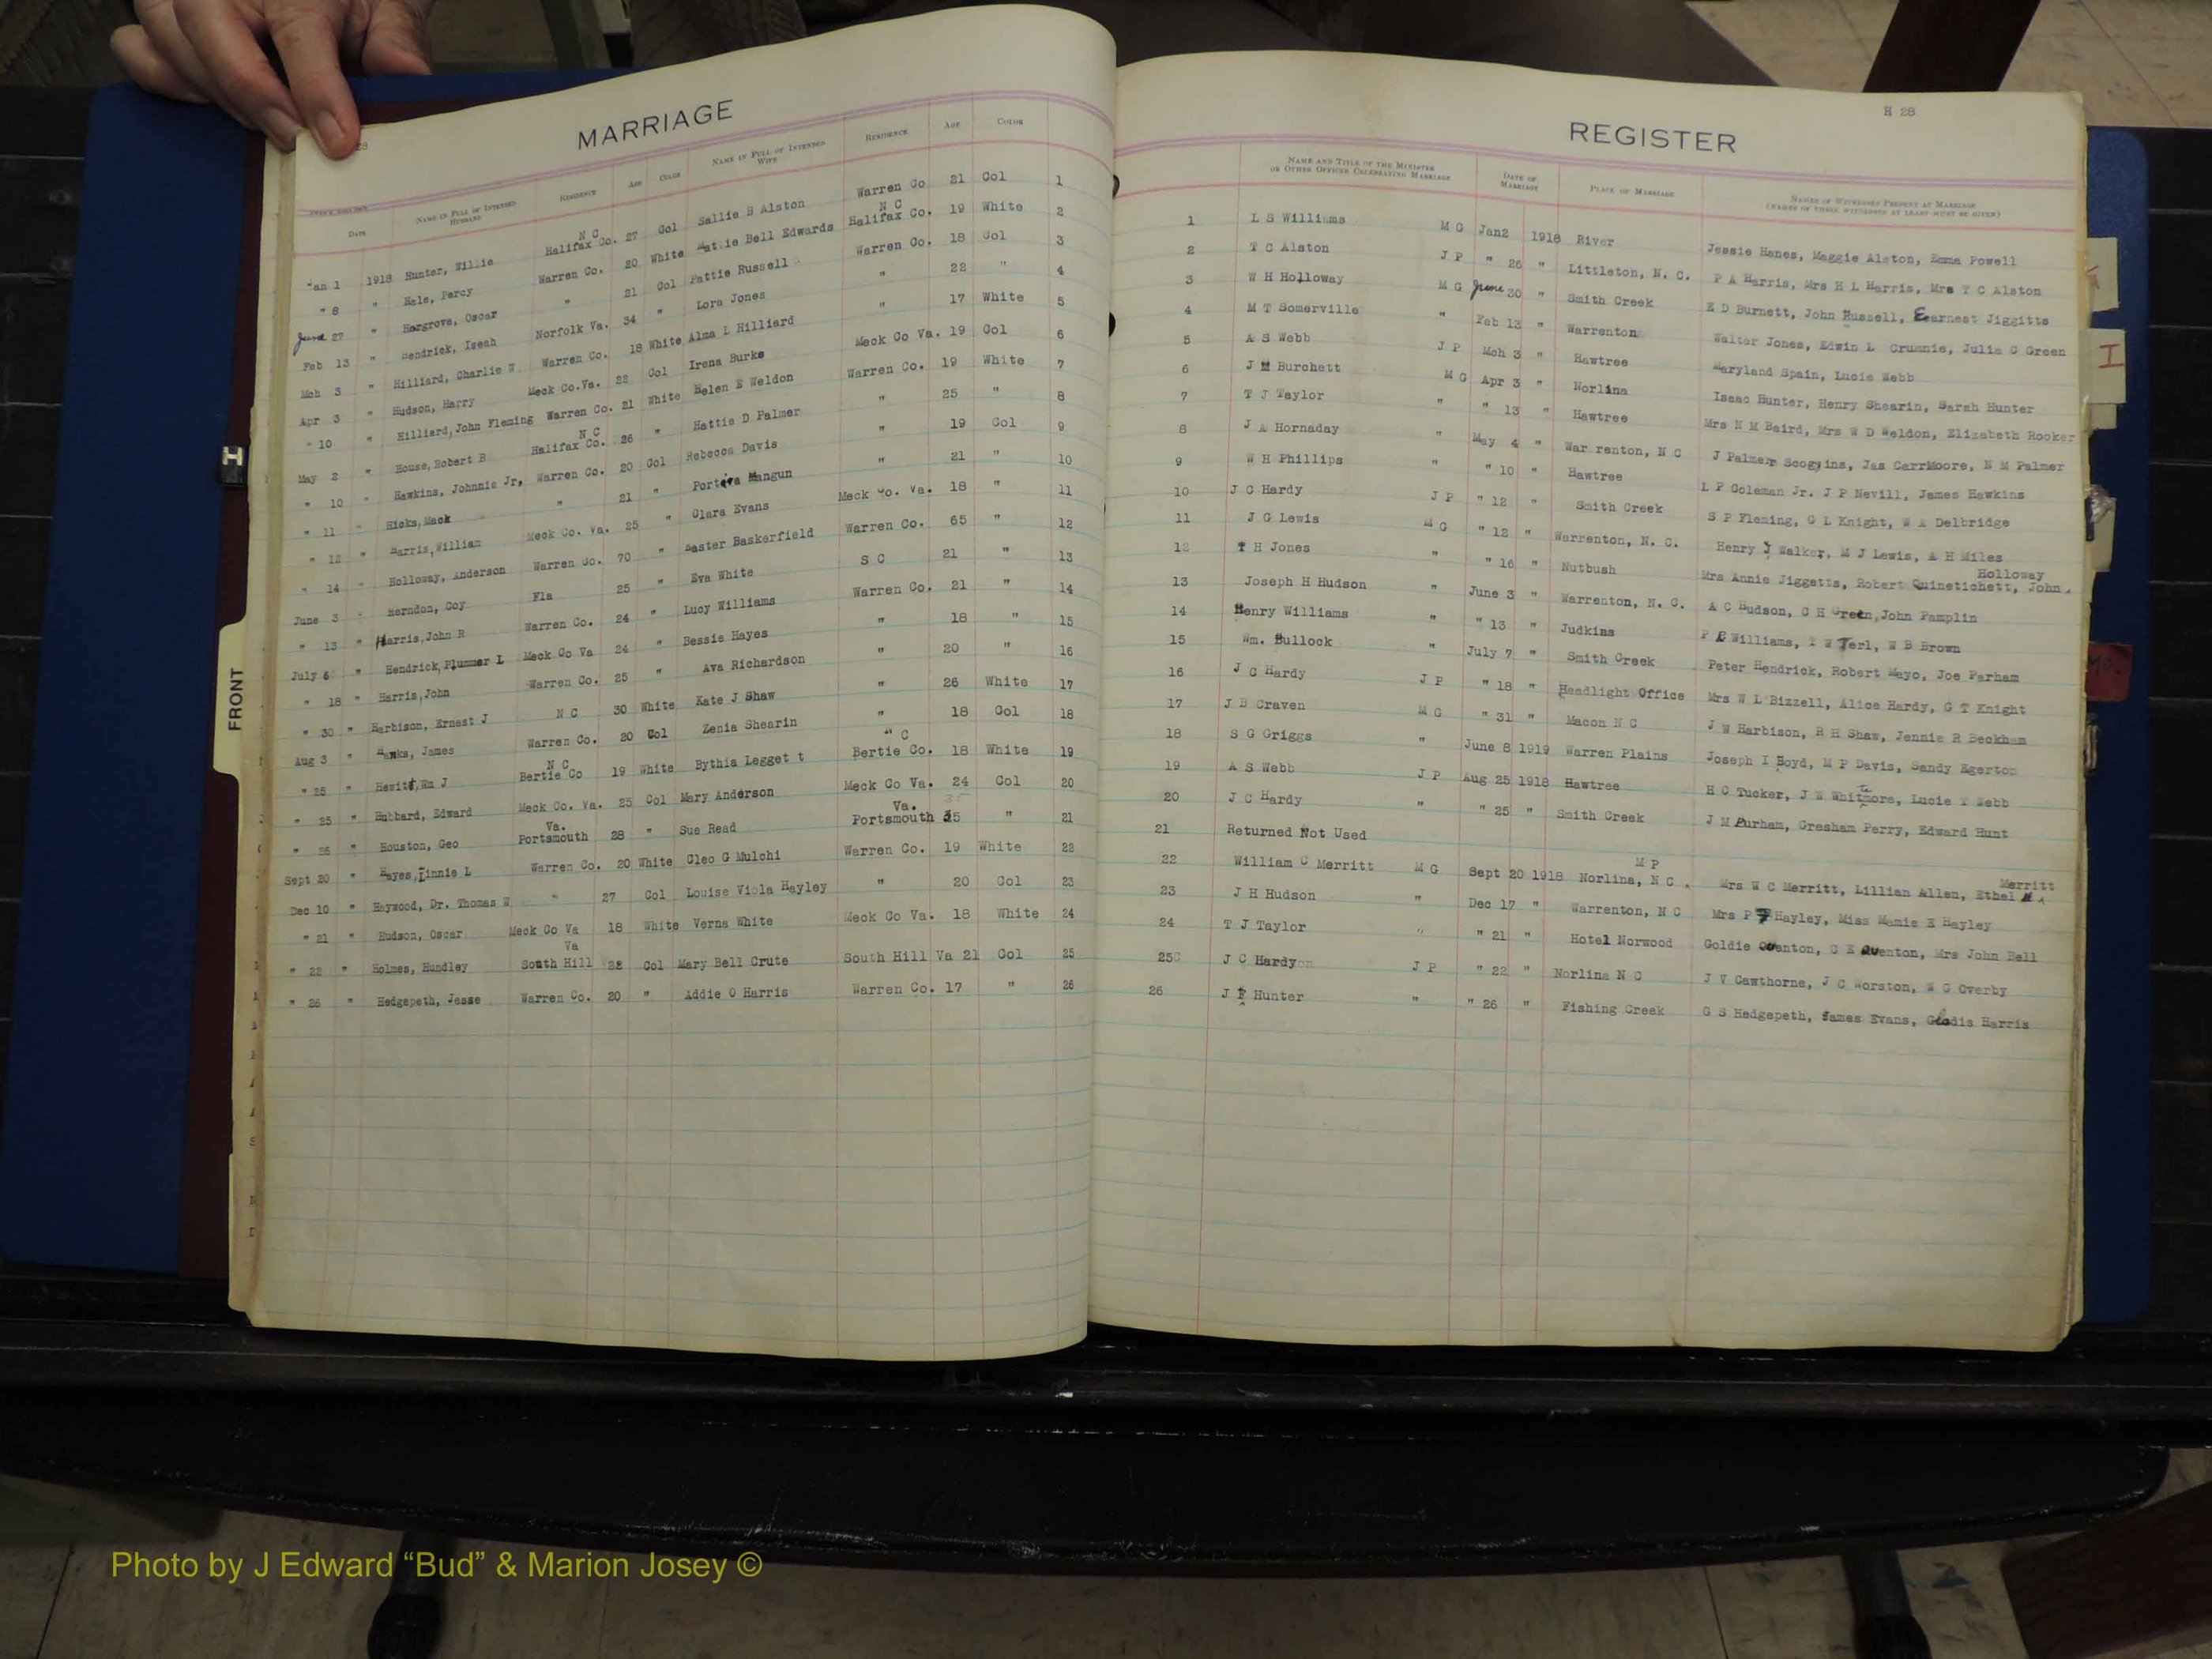 28
MARRIAGE
DATE NAME IN FULL OF INTENDED HUSBAND RESIDENCE AGE COLOR NAME IN FULL OF INTENDED WIFE RESIDENCE AGE COLOR
Jan 1 1918 Hunter, Willie N C Halifax Co. 27 Col Sallie B Alston Warren Co 21 Col 1
" 8 " Hale, Percy Warren Co. 20 White Mattie Bell Edwards N C Halifax Co. 19 White 2
June 27 " Hargrove, Oscar " 21 Col Pattie Russell Warren Co. 18 Col 3
Feb 13 " Hendrick, Iseah Norfolk Va. 34 " Lora Jones " 22 " 4
Mch 3 " Hilliard, Charlie W. Warren Co. 18 White Alma L Hilliard " 17 White 5
Apr 3 " Hudson, Harry Meck Co.Va. 22 Col Irena Burke Meck Co Va. 19 Col 6
" 10 " Hilliard, John Fleming Warren Co. 21 White Helen E Weldon Warren Co. 19 White 7
May 2 " House, Robert B N C Halifax Co. 26 " Hattie D Palmer " 25 " 8
" 10 " Hawkins, Johnnie Jr, Warren Co. 20 Col Rebecca Davis " 19 Col 9
" 11 " Hicks, Mack " 21 " Mangun " 21 " 10
" 12 " Harris, William Meck Co. Va. 25 " Clara Evans Meck Co. Va. 18 " 11
" 14 " Holloway, Anderson Warren Co. 70 " Easter Baskerfield Warren Co. 65 " 12
June 3 " Herndon, Coy Fla 25 " Eva White S C 21 " 13
" 13 " Harris, John R Warren Co. 24 " Lucy Williams Warren Co. 21 " 14
July 6 " Hendrick, Plummer L Meck Co Va 24 " Bessie Hayes " 18 " 15
" 18 " Harris, John Warren Co. 25 " Ava Richardson " 20 " 16
" 30 " Harbison, Ernest J N C 30 White Kate J Shaw " 26 White 17
Aug 3 " Hanks, James Warren Co. 20 Col Zenia Shearin " 18 Col 18
" 25 " Hewitt, Wm J N C Bertie Co 19 White Bythia Legget t N C Bertie Co. 18 White 19
" 25 " Hubbard, Edward Meck Co. Va. 25 Col Mary Anderson Meck Co Va. 24 Col 20
" 26 " Houston, Geo Va. Portsmouth 28 " Sue Read Va. Portsmouth 35 " 21
Sept 20 " Hayes, Linnie L Warren Co. 20 White Cleo G Mulchi Warren Co. 19 White 22
Dec 10 " Haywood, Dr. Thomas W " 27 Col Louise Viola Hayley " 20 Col 23
" 21 " Hudson, Oscar Meck Co Va 18 White Verna White Meck Co Va. 18 White 24
" 22 " Holmes, Hundley Va South Hill 22 Col Mary Bell Crute South Hill Va 21 Col 25
" 26 " Hedgepeth, Jesse Warren Co. 20 " Addie O Harris Warren Co. 17 " 26
H 28
REGISTER
NAME AND TITLE OF THE MINISTER OR OTHER OFFICER CELEBRATING MARRIAGE DATE OF MARRIAGE PLACE OF MARRIAGE NAMES OF WITNESSES PRESENT AT MARRIAGE (NAMES OF THREE WITNESSES AT LEAST MUST BE GIVEN)
1 L S Williams M G Jan2 1918 River Jessie Hanes, Maggie Alston, Emma Powell
2 T C Alston J P " 26 " Littleton, N. C. P A Harris, Mrs H L Harris, Mrs T C Alston
3 W H Holloway M G June 30 " Smith Creek E D Burnett, John Russell, Earnest Jiggitts
4 M T Somerville " Feb 13 " Warrenton Walter Jones, Edwin L Crumnie, Julia G Green
5 A S Webb J P Mch 3 " Hawtree Maryland Spain, Lucie Webb
6 J M Burchett M G Apr 3 " Norlina Isaac Hunter, Henry Shearin, Sarah Hunter
7 T J Taylor " " 13 " Hawtree Mrs N M Baird, Mrs W D Weldon, Elizabeth Rooker
8 J A Hornaday " May 4 " War renton, N C J Palmer Scoggins, Jas CarrMoore, N M Palmer
9 W H Phillips " " 10 " Hawtree L P Coleman Jr. J P Nevill, James Hawkins
10 J C Hardy J P " 12 " Smith Creek S P Fleming, C L Knight, W A Delbridge
11 J G Lewis M G " 12 " Warrenton, N. C. Henry J Walker, M J Lewis, A H Miles
12 T H Jones " " 16 " Nutbush Mrs Annie Jiggetts, Robert Quinetichett, John Holloway
13 Joseph H Hudson " June 3 " Warrenton, N. C. A C Hudson, C H Green, John Pamplin
14 Henry Williams " " 13 " Judkins P E Williams, T W Terl, W B Brown
15 Wm. Bullock " July 7 " Smith Creek Peter Hendrick, Robert Mayo, Joe Parham
16 J C Hardy J P " 18 " Headlight Office Mrs W L Bizzell, Alice Hardy, G T Knight
17 J B Craven M G " 31 " Macon N C J W Harbison, R H Shaw, Jennie R Beckham
18 S G Griggs " June 8 1919 Warren Plains Joseph I Boyd, M P Davis, Sandy Egerton
19 A S Webb J P Aug 25 1918 Hawtree H C Tucker, J W Whitmore, Lucie T Webb
20 J C Hardy " " 25 " Smith Creek J M Durham, Gresham Perry, Edward Hunt
21 Returned Not Used
22 William C Merritt M G Sept 20 1918 M P Norlina, N C. Mrs W C Merritt, Lillian Allen, Ethel Merritt
23 J H Hudson " Dec 17 " Warrenton, N C Mrs P F Hayley, Miss Mamie E Hayley
24 T J Taylor " " 21 " Hotel Norwood Goldie Quenton, C E Quenton, Mrs John Bell
25 J C Hardy J P " 22 " Norlina N C J V Cawthorne, J C Worston, W G Overby
26 J F Hunter " " 26 " Fishing Creek G S Hedgepeth, James Evans, Gladis Harris
H
FRONT
I
Photo by J Edward “Bud” & Marion Josey ©